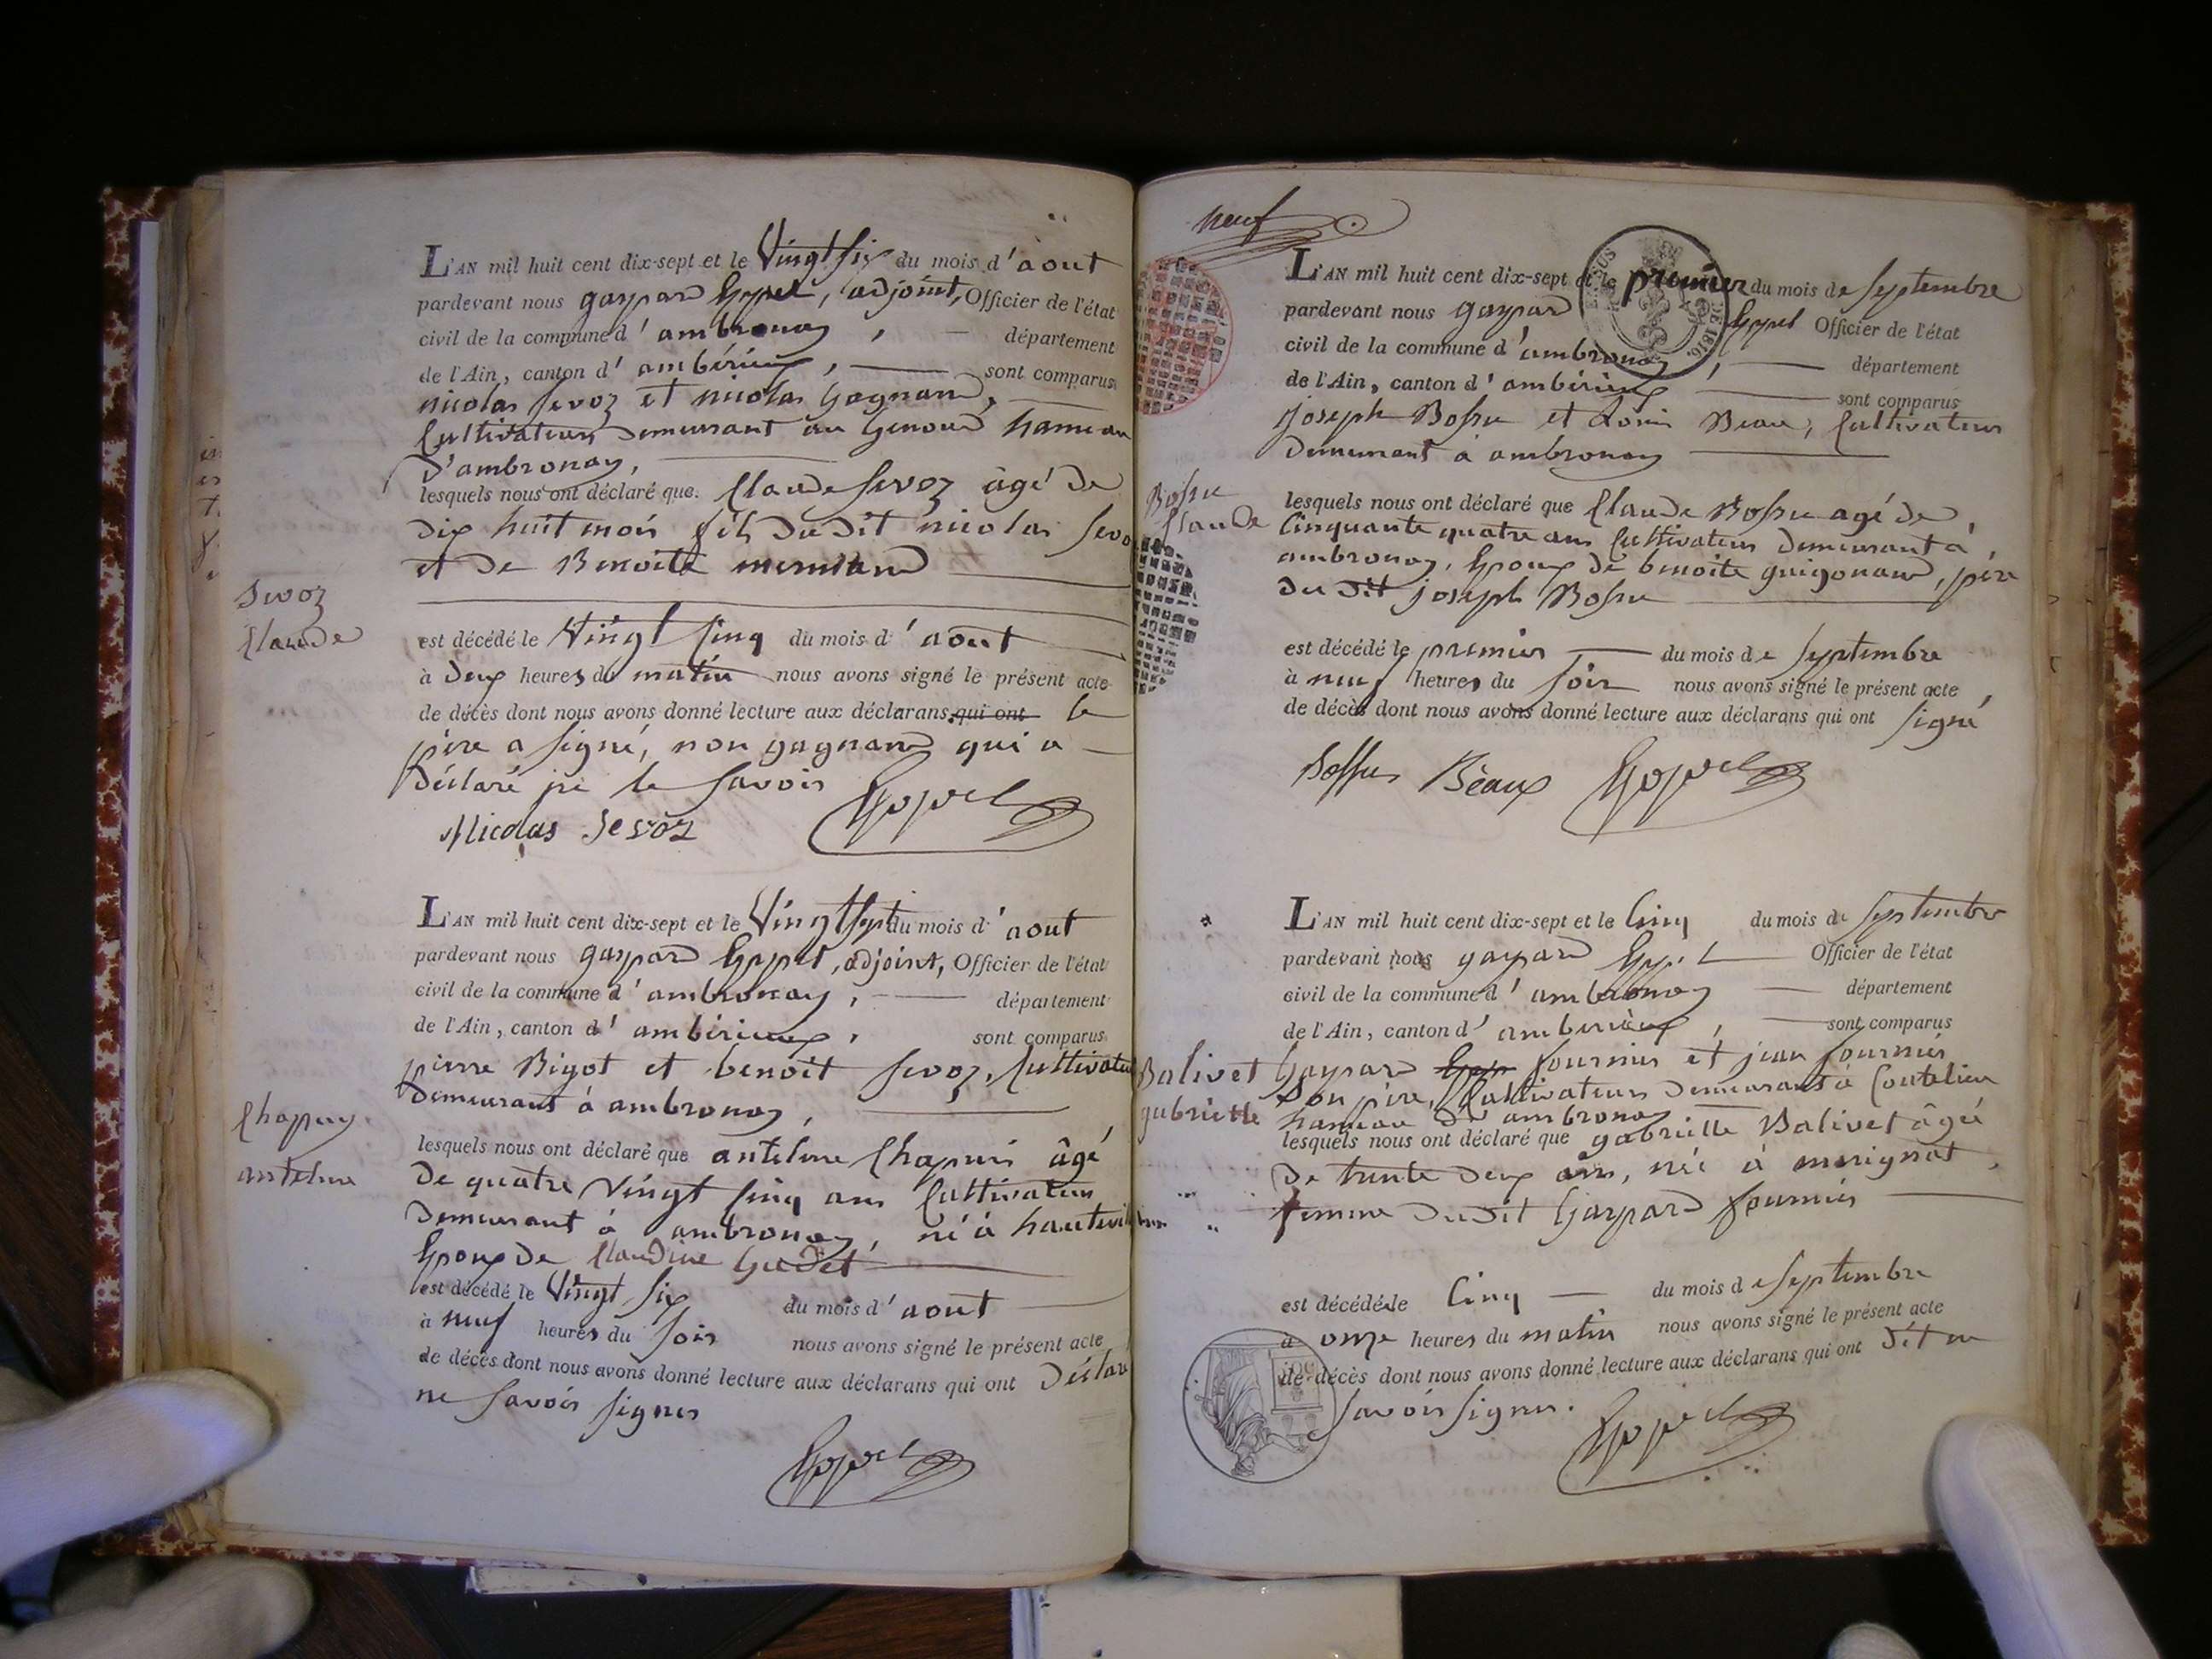 L'AN mil huit cent dix-sept et le Vingt six du mois d'aout
pardevant nous gaspard Goppel, adjoint, Officier de l'état
civil de la commune d'ambronay, département
de l'Ain, canton d'ambérieux, sont comparus
nicolas Sevoz et nicolas Gagnand,
Cultivateurs demeurant au Genoud hameau
D'ambronay,
lesquels nous ont déclaré que Claude Sevoz âgé de
dix huit mois fils du dit nicolas Sevo
et de Benoite
Sevoz
Claude
est décédé le Vingt Cinq du mois d'aout
à deux heures du matin nous avons signé le présent acte
de décès dont nous avons donné lecture aux déclarans qui ont le
père a signé, non gagnand qui a
Déclaré ne le Savoir
Nicolas Sevoz
L'AN mil huit cent dix-sept et le Vingt sept du mois d'aout
pardevant nous gaspard, adjoint, Officier de l'état
civil de la commune d'ambronay, département
de l'Ain, canton d'ambérieux, sont comparus
pierre Bigot et benoit Sevoz, Cultivateu
Demeurant à ambronay,
Chapuy
antelme
lesquels nous ont déclaré que antelme Chapuis âgé
De quatre Vingt Cinq ans Cultivateur
Demeurant à ambronay, né à hauteville
Epoux de Claudine Gudet
est décédé le Vingt Six du mois d'aout
à neuf heures du Soir nous avons signé le présent acte
de décès dont nous avons donné lecture aux déclarans qui ont Déclar
ne Savoir signer
neuf
L'AN mil huit cent dix-sept et le premier du mois de Septembre
pardevant nous gaspard Officier de l'état
civil de la commune d'ambronay, département
de l'Ain, canton d'ambérieux sont comparus
Joseph Bossu et Louis Beau, Cultivateurs
Demeurant à ambronay
Bossu
Claude
lesquels nous ont déclaré que Claude Bossu agé de
Cinquante quatre ans Cultivateur demeurant à
ambronay, Epoux de benoite guigonand, père
du dit joseph Bossu
est décédé le premier du mois de Septembre
à neuf heures du Soir nous avons signé le présent acte
de décès dont nous avons donné lecture aux déclarans qui ont Signé
Bossu Bèaux
L'AN mil huit cent dix-sept et le Cinq du mois de Septembre
pardevant nous gaspard Officier de l'état
civil de la commune d'ambronay département
de l'Ain, canton d'ambérieux, sont comparus
Balivet
gabrielle
Gaspard fournier et jean fournier
Son père, Cultivateurs Demeurant à Coutelieu
hameau d'ambronay
lesquels nous ont déclaré que gabrielle Balivet âgé
De trente deux ans, née à merignat,
femme du dit Gaspard fournier
est décédée le Cinq du mois de Septembre
à onze heures du matin nous avons signé le présent acte
de décès dont nous avons donné lecture aux déclarans qui ont dit ne
Savoir signer.